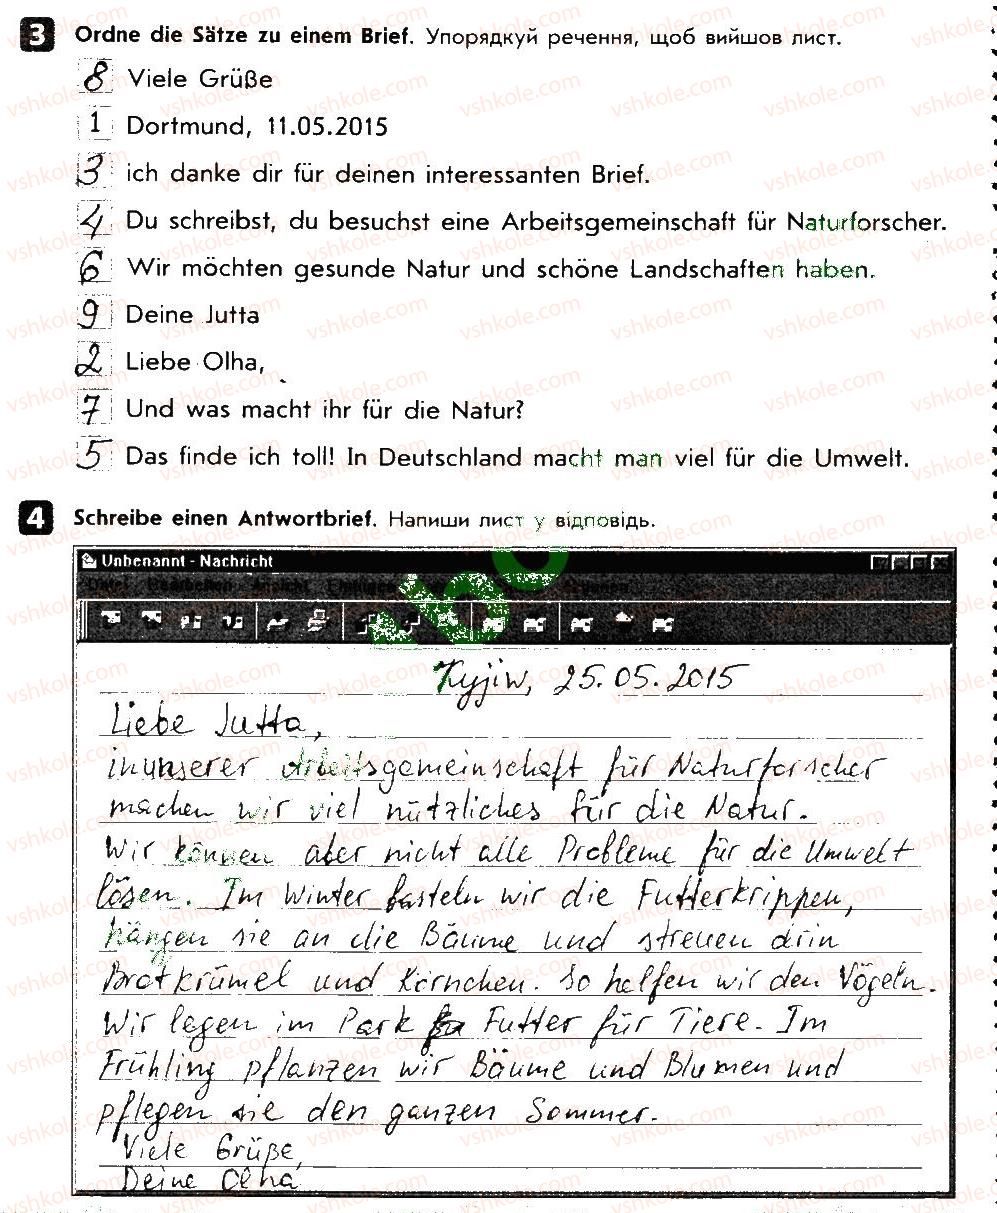 3 Ordne die Sätze zu einem Brief. Упорядкуй речення, щоб вийшов лист.
8 Viele Grüße
1 Dortmund, 11.05.2015
3 ich danke dir für deinen interessanten Brief.
4 Du schreibst, du besuchst eine Arbeitsgemeinschaft für Naturforscher.
6 Wir möchten gesunde Natur und schöne Landschaften haben.
9 Deine Jutta
2 Liebe Olha,
7 Und was macht ihr für die Natur?
5 Das finde ich toll! In Deutschland macht man viel für die Umwelt.
4 Schreibe einen Antwortbrief. Напиши лист у відповідь.
Unbenannt - Nachricht
Kyjiw, 25.05.2015
Liebe Jutta,
in unserer Arbeitsgemeinschaft für Naturforscher
machen wir viel nützliches für die Natur.
Wir können aber nicht alle Probleme für die Umwelt
lösen. Im Winter basteln wir die Futterkrippen,
hängen sie an die Bäume und streuen drin
Brotkrümel und Körnchen. So helfen wir den Vögeln.
Wir legen im Park Futter für Tiere. Im
Frühling pflanzen wir Bäume und Blumen und
pflegen sie den ganzen Sommer.
Viele Grüße,
Deine Olha
vshkole.com